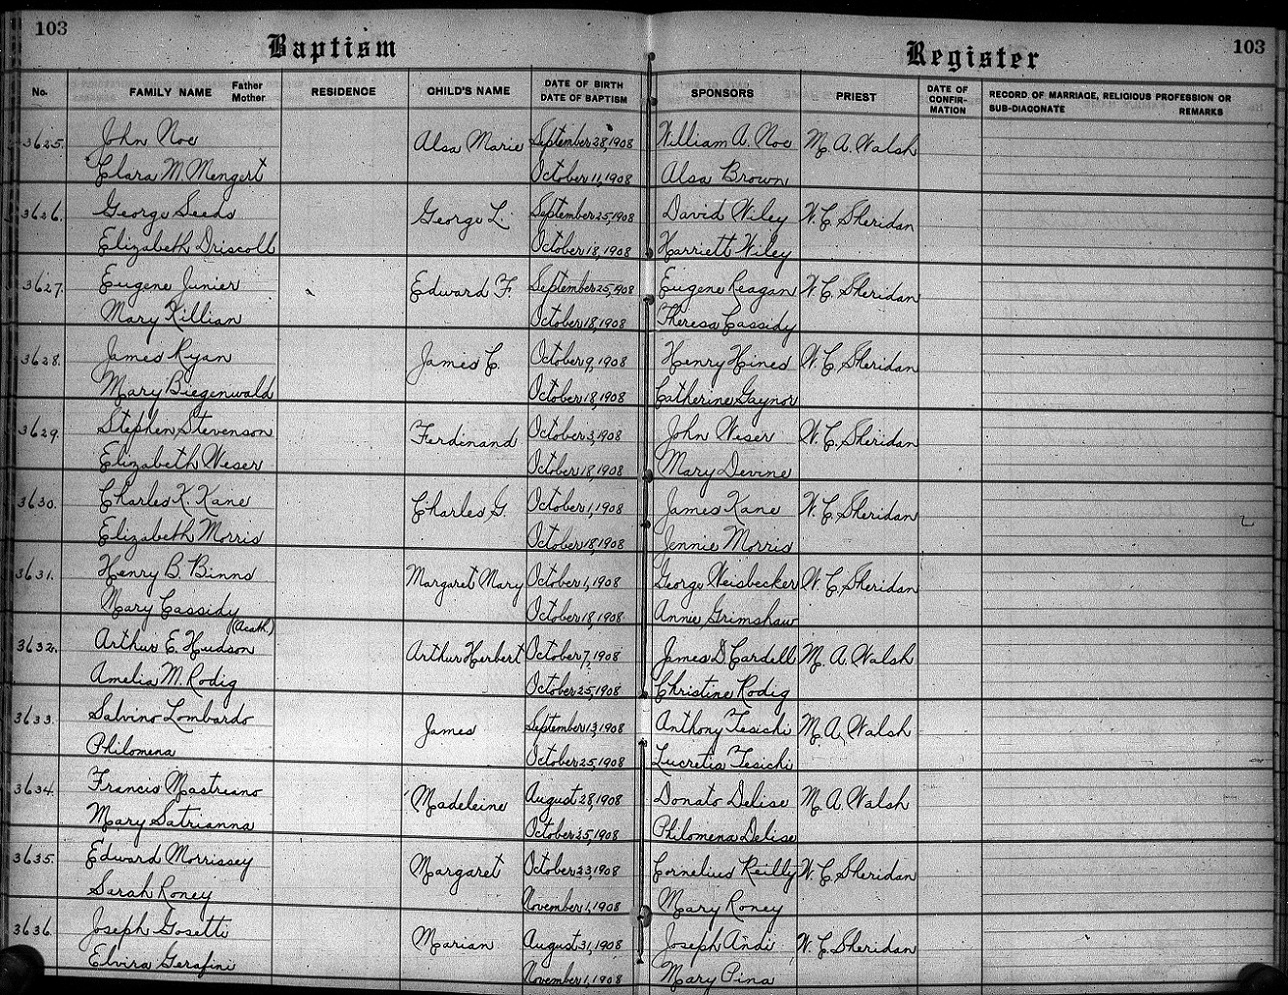 103
103
Baptism
Register
No.
FAMILY NAME Father Mother
RESIDENCE
CHILD'S NAME
DATE OF BIRTH DATE OF BAPTISM
SPONSORS
PRIEST
DATE OF CONFIR- MATION
RECORD OF MARRIAGE, RELIGIOUS PROFESSION OR SUB-DIACONATE REMARKS
3625. John Noe Alsa Marie September 28, 1908 William A. Noe M. A. Walsh
Clara M. Mengert October 11, 1908 Alsa Brown
3626. George Seeds George L. September 25, 1908 David Wiley W. C. Sheridan
Elizabeth Driscoll October 18, 1908 Harriett Wiley
3627. Eugene Junier Edward F. September 25, 1908 Eugene Reagan W. C. Sheridan
Mary Killian October 18, 1908 Theresa Cassidy
3628. James Ryan James C. October 9, 1908 Henry Hines W. C. Sheridan
Mary Biegenwald October 18, 1908 Catherine Gaynor
3629. Stephen Stevenson Ferdinand October 3, 1908 John Weser W. C. Sheridan
Elizabeth Weser October 18, 1908 Mary Devine
3630. Charles K. Kane Charles G. October 1, 1908 James Kane W. C. Sheridan
Elizabeth Morris October 18, 1908 Jennie Morris
3631. Henry B. Binns Margaret Mary October 1, 1908 George Weisbecker W. C. Sheridan
Mary Cassidy October 18, 1908 Annie Grimshaw
(Acath.)
3632. Arthur E. Hudson Arthur Herbert October 7, 1908 James D. Cardell M. A. Walsh
Amelia M. Rodig October 25, 1908 Christine Rodig
3633. Salvino Lombardo James September 13, 1908 Anthony Tesichi M. A. Walsh
Philomena October 25, 1908 Lucretia Tesichi
3634. Francis Mastriano Madeleine August 28, 1908 Donato Delise M. A. Walsh
Mary Satrianna October 25, 1908 Philomena Delise
3635. Edward Morrissey Margaret October 23, 1908 Cornelius Reilly W. C. Sheridan
Sarah Roney November 1, 1908 Mary Roney
3636. Joseph Gosetti Marian August 31, 1908 Joseph Andi W. C. Sheridan
Elvira Gerafini November 1, 1908 Mary Pina